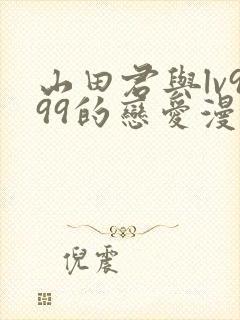 山田君與lv9
99的戀愛漫
倪震